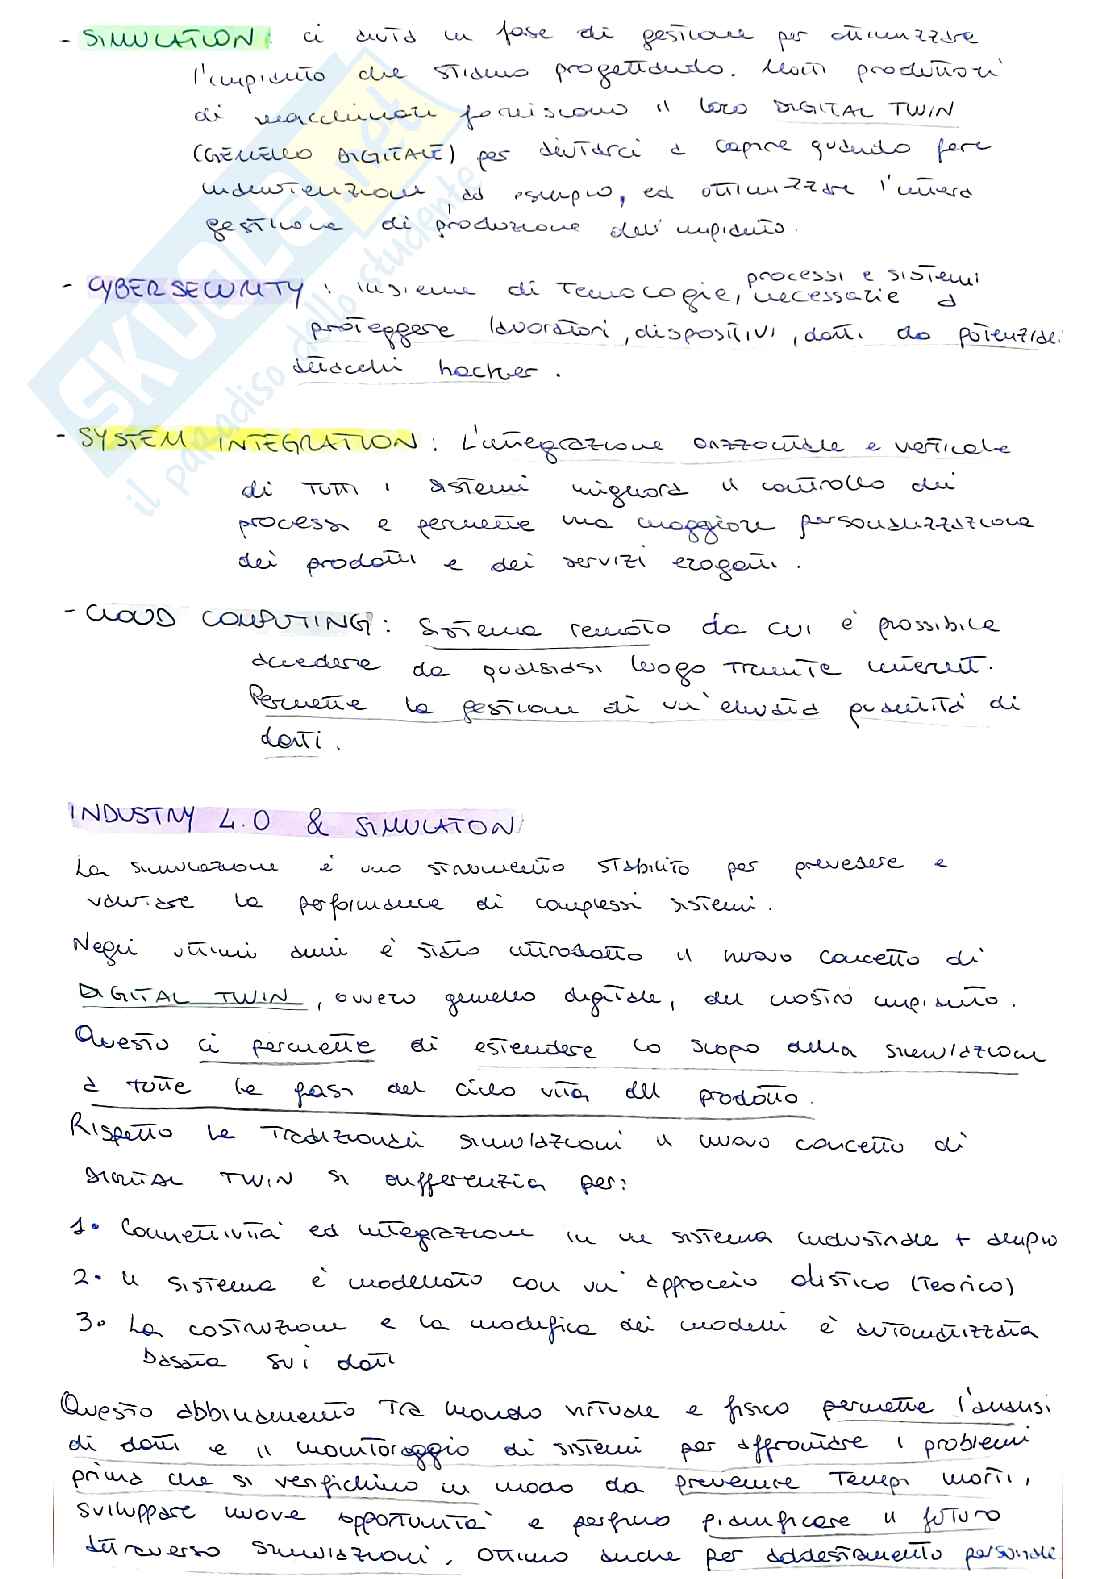 - SIMULATION: ci aiuta in fase di gestione per ottimizzare
l'impianto che stiamo progettando. Molti produttori
di macchinari forniscono il loro DIGITAL TWIN
(GEMELLO DIGITALE) per aiutarci a capire quando fare
manutenzione ad esempio, ed ottimizzare l'intera
gestione di produzione dell'impianto.
- CYBERSECURITY: insieme di tecnologie, processi e sistemi necessarie a
proteggere lavoratori, dispositivi, dati da potenziali
attacchi hacker.
- SYSTEM INTEGRATION: L'integrazione orizzontale e verticale
di tutti i sistemi migliora il controllo dei
processi e permette una maggiore personalizzazione
dei prodotti e dei servizi erogati.
- CLOUD COMPUTING: Sistema remoto da cui è possibile
accedere da qualsiasi luogo tramite internet.
Permette la gestione di un'elevata quantità di
dati.
INDUSTRY 4.0 & SIMULATON
La simulazione è uno strumento stabilito per prevedere e
valutare la performance di complessi sistemi.
Negli ultimi anni è stato introdotto il nuovo concetto di
DIGITAL TWIN, ovvero gemello digitale, del nostro impianto.
Questo ci permette di estendere lo scopo della simulazione
a tutte le fasi del ciclo vita del prodotto.
Rispetto le tradizionali simulazioni il nuovo concetto di
DIGITAL TWIN si differenzia per:
1. Connettività ed integrazione in un sistema industriale + ampio
2. Il sistema è modellato con un approccio olistico (teorico)
3. La costruzione e la modifica dei modelli è automatizzata
basata sui dati
Questo abbinamento tra mondo virtuale e fisico permette l'analisi
di dati e il monitoraggio di sistemi per affrontare i problemi
prima che si verifichino in modo da prevenire tempi morti,
sviluppare nuove opportunità e perfino pianificare il futuro
attraverso simulazioni. Ottimo anche per addestramento personale
SKUOLA.net
il paradiso dello studente